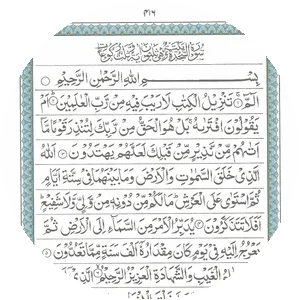 ۴۱۶
سورة السجدة مكية وهي ثلاثون آية
بِسْمِ اللهِ الرَّحْمٰنِ الرَّحِيْمِ
الٓمّٓ ۝١ تَنْزِيْلُ الْكِتٰبِ لَا رَيْبَ فِيْهِ مِنْ رَّبِّ الْعٰلَمِيْنَ ۝٢ اَمْ
يَقُوْلُوْنَ افْتَرٰىهُ ۚ بَلْ هُوَ الْحَقُّ مِنْ رَّبِّكَ لِتُنْذِرَ قَوْمًا مَّآ
اَتٰىهُمْ مِّنْ نَّذِيْرٍ مِّنْ قَبْلِكَ لَعَلَّهُمْ يَهْتَدُوْنَ ۝٣ اَللّٰهُ
الَّذِيْ خَلَقَ السَّمٰوٰتِ وَالْاَرْضَ وَمَا بَيْنَهُمَا فِيْ سِتَّةِ اَيَّامٍ
ثُمَّ اسْتَوٰى عَلَى الْعَرْشِ ۗ مَا لَكُمْ مِّنْ دُوْنِهٖ مِنْ وَّلِيٍّ وَّلَا شَفِيْعٍ ۗ
اَفَلَا تَتَذَكَّرُوْنَ ۝٤ يُدَبِّرُ الْاَمْرَ مِنَ السَّمَآءِ اِلَى الْاَرْضِ ثُمَّ
يَعْرُجُ اِلَيْهِ فِيْ يَوْمٍ كَانَ مِقْدَارُهٗٓ اَلْفَ سَنَةٍ مِّمَّا تَعُدُّوْنَ ۝٥
الْغَيْبِ وَالشَّهَادَةِ الْعَزِيْزُ الرَّحِيْمُ ۝٦ الَّذِيْٓ